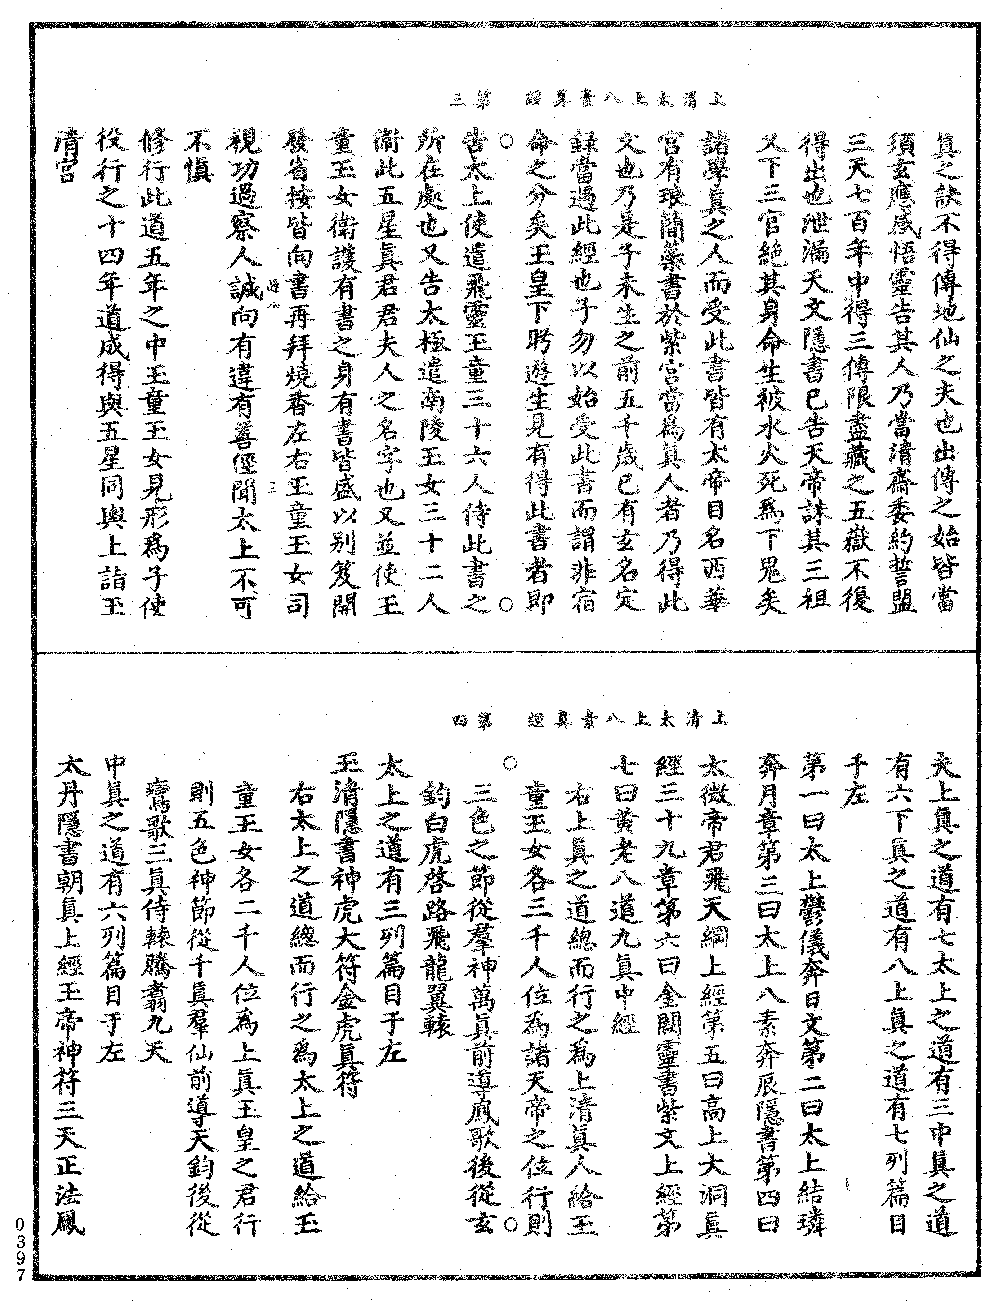 上清太上八素真經　第三
真之訣不得傳地仙之夫也出傳之始皆當
須玄應感悟靈告其人乃當清齋委約誓盟
三天七百年中得三傳限盡藏之五嶽不復
得出也泄漏天文隱書已告天帝誅其三祖
又下三官絕其身命生被水火死為下鬼矣
諸學真之人而受此書皆有太帝目名西華
宮有琅簡蘂書於紫宮當為真人者乃得此
文也乃是子未生之前五千歲已有玄名定
籙當遇此經也子勿以始受此書而謂非宿
命之分矣玉皇下盻遊生見有得此書者即
告太上使遣飛靈玉童三十六人侍此書之
所在處也又告太極遣南陵玉女三十二人
衛此五星真君君夫人之名字也又並使玉
童玉女衛護有書之身有書皆盛以別笈開
發省按皆向書再拜燒香左右玉童玉女司
視功過察人誠向有違有善徑聞太上不可
不慎
修行此道五年之中玉童玉女見形為子使
役行之十四年道成得與五星同輿上詣玉
清宮
上清太上八素真經　第四
夫上真之道有七太上之道有三中真之道
有六下真之道有八上真之道有七列篇目
于左
第一曰太上鬱儀奔日文第二曰太上結璘
奔月章第三曰太上八素奔辰隱書第四曰
太微帝君飛天綱上經第五曰高上大洞真
經三十九章第六曰金闕靈書紫文上經第
七曰黃老八道九真中經
右上真之道總而行之為上清真人給玉
童玉女各三千人位為諸天帝之位行則
三色之節從羣神萬真前導鳳歌後從玄
鈞白虎啓路飛龍翼轅
太上之道有三列篇目于左
玉清隱書神虎大符金虎真符
右太上之道總而行之為太上之道給玉
童玉女各二千人位為上真玉皇之君行
則五色神節從千真羣仙前導天鈞後從
鸞歌三真侍轅騰翥九天
中真之道有六列篇目于左
太丹隱書朝真上經玉帝神符三天正法鳳
0397